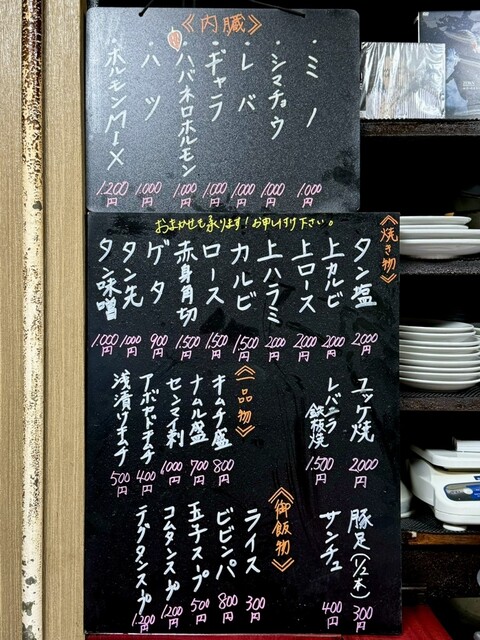 《内臓》
・ミノ 1.000円
・シマチョウ 1.000円
・レバ 1.000円
・ギャラ 1.000円
・ハバネロホルモン 1.000円
・ハツ 1.000円
・ホルモンMIX 1.200円
おまかせも承ります!お申し付け下さい。
《焼き物》
タン塩 2000円
上カルビ 2000円
上ロース 2000円
上ハラミ 2000円
カルビ 1,500円
ロース 1,500円
赤身角切 1.500円
ゲタ 900円
タン先 1000円
タン味噌 1.000円
ユッケ焼 2,000円
レバニラ鉄板焼 1.500円
《一品物》
キムチ盛 800円
ナムル盛 700円
センマイ刺 1000円
アボカドキムチ 400円
浅漬けキムチ 500円
豚足(1/2本) 300円
サンチュ 400円
《御飯物》
ライス 300円
ビビンパ 800円
玉子スープ 500円
コムタンスープ 1,200円
テグタンスープ 1.200円